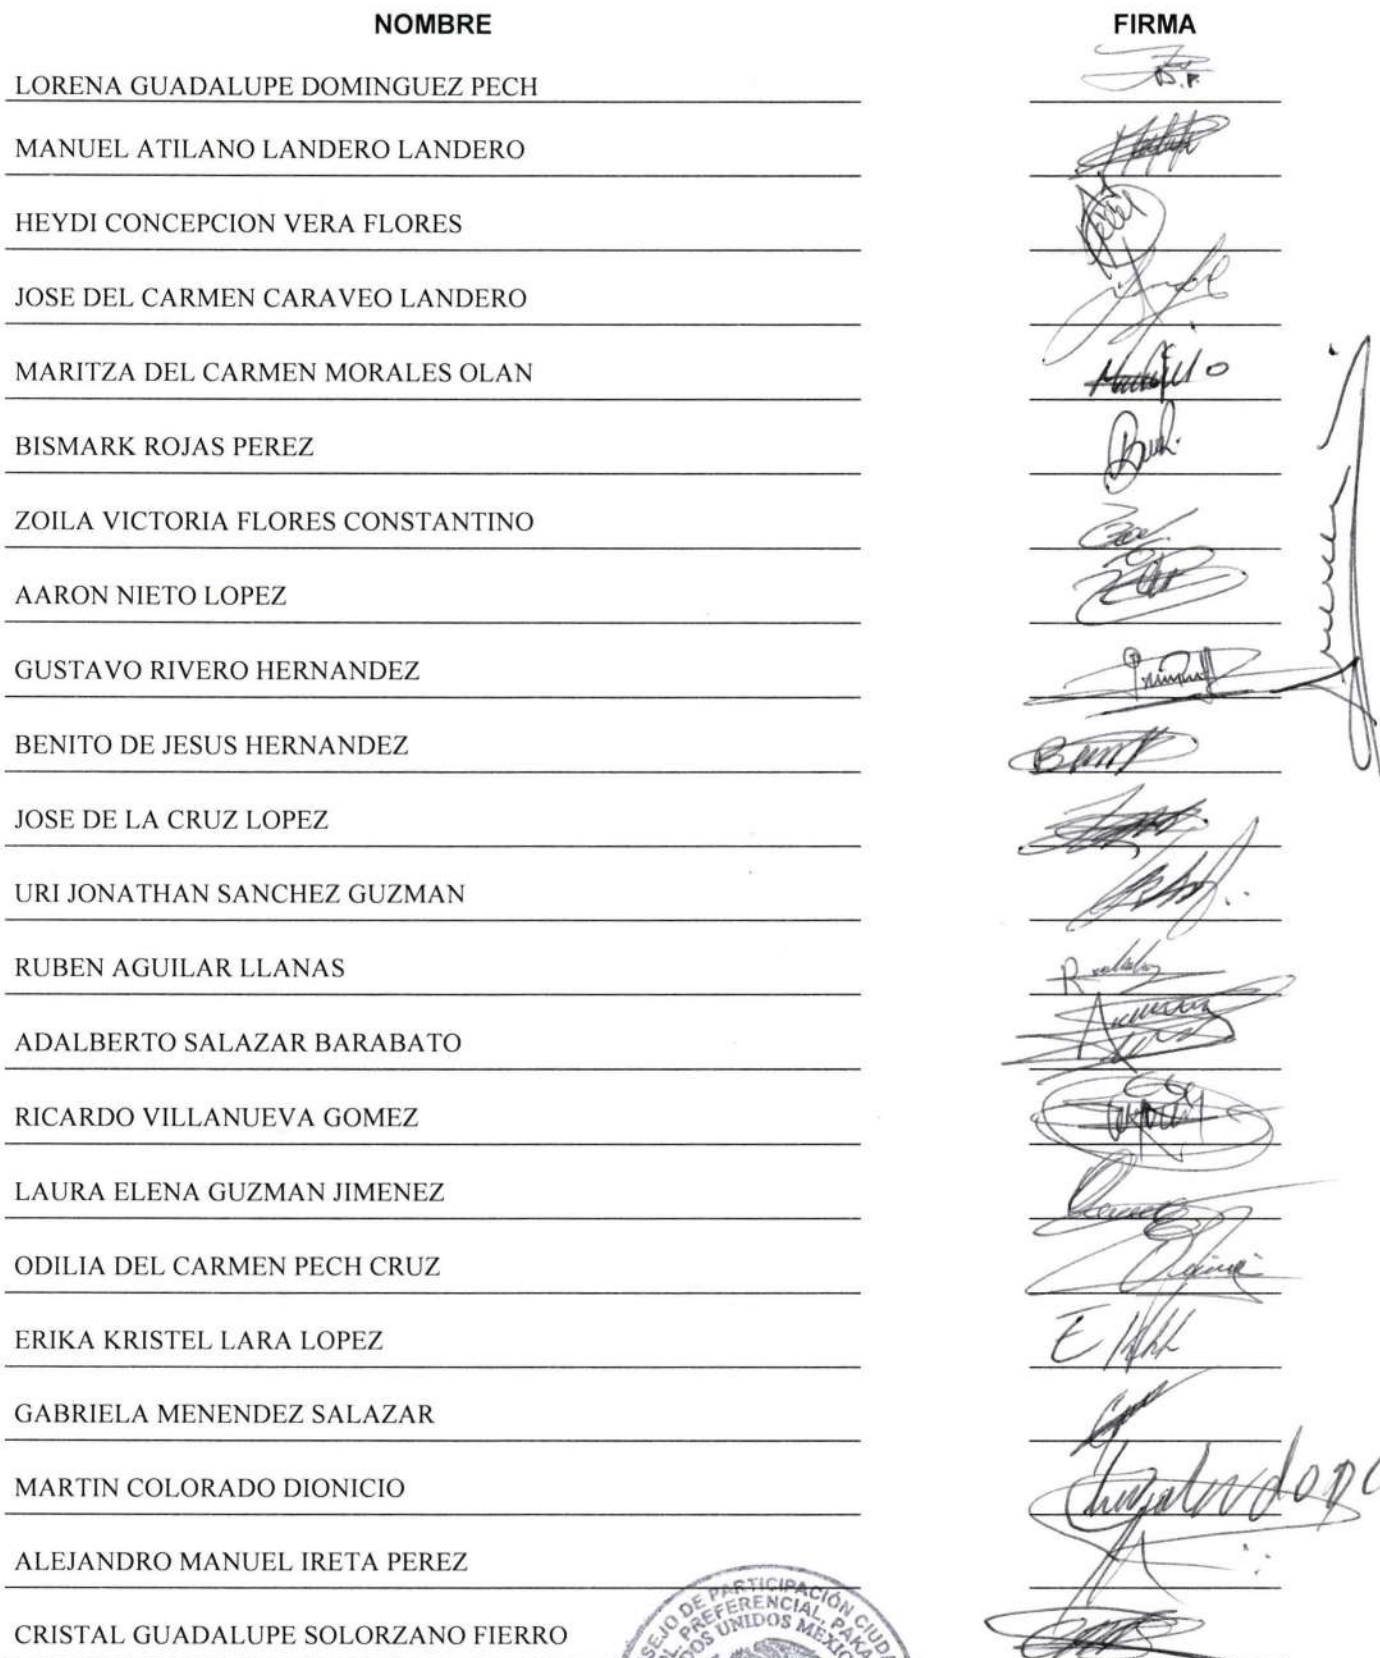 NOMBRE FIRMA
LORENA GUADALUPE DOMINGUEZ PECH
MANUEL ATILANO LANDERO LANDERO
HEYDI CONCEPCION VERA FLORES
JOSE DEL CARMEN CARAVEO LANDERO
MARITZA DEL CARMEN MORALES OLAN
BISMARK ROJAS PEREZ
ZOILA VICTORIA FLORES CONSTANTINO
AARON NIETO LOPEZ
GUSTAVO RIVERO HERNANDEZ
BENITO DE JESUS HERNANDEZ
JOSE DE LA CRUZ LOPEZ
URI JONATHAN SANCHEZ GUZMAN
RUBEN AGUILAR LLANAS
ADALBERTO SALAZAR BARABATO
RICARDO VILLANUEVA GOMEZ
LAURA ELENA GUZMAN JIMENEZ
ODILIA DEL CARMEN PECH CRUZ
ERIKA KRISTEL LARA LOPEZ
GABRIELA MENENDEZ SALAZAR
MARTIN COLORADO DIONICIO
ALEJANDRO MANUEL IRETA PEREZ
CRISTAL GUADALUPE SOLORZANO FIERRO
SEJO DE PARTICIPACIÓN CIUDA
L. PREFERENCIAL, PAKA
DOS UNIDOS MEXIC